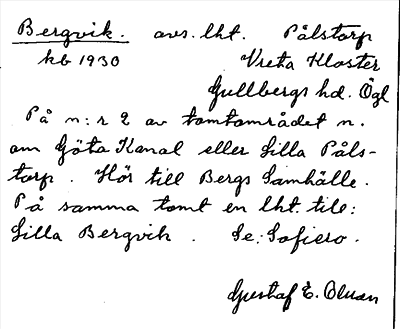 Bergvik. avs. lht. Pålstorp
kb 1930 Vreta Kloster
Gullbergs hd. Ögl
På n:r 2 av tomtområdet n.
om Göta Kanal eller Lilla Påls-
torp. Hör till Bergs Samhälle.
På samma tomt en lht. till:
Lilla Bergvik. Se: Sofiero.
Gustaf E. Olsson